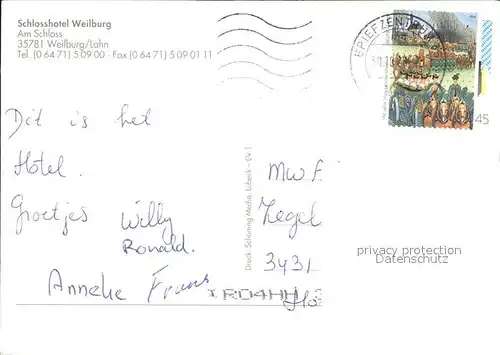 Schlosshotel Weilburg
Am Schloss
35781 Weilburg/Lahn
Tel. (0 64 71) 5 09 00 · Fax (0 64 71) 5 09 01 11
BRIEFZENTRUM
45
Dit is het
Hotel.
Groetjes Willy
Ronald.
Anneke Frans
Druck: Schöning Media, Lübeck – EV 1
MW F
Kegel
3431
privacy protection
Datenschutz